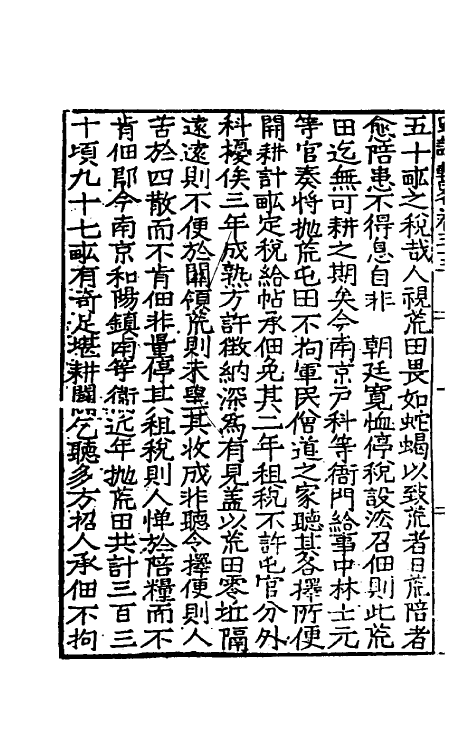 五十畝之稅哉人視荒田畏如蛇蝎以致荒者日荒陪者
愈陪患不得息自非　朝廷寬恤停稅設法召佃則此荒
田迄無可耕之期矣今南京戶科等衙門給事中林士元
等官奏將抛荒屯田不拘軍民僧道之家聽其各擇所便
開耕計畝定稅給帖承佃免其二年租稅不許屯官分外
科擾俟三年成熟方許徵納深為有見盖以荒田零坵隔
遠遠則不便於開領荒則未覩其收成非聽令擇便則人
苦於四散而不肯佃非量停其租稅則人憚於陪糧而不
肯佃即今南京和陽鎮南等衛近年抛荒田共計三百三
十頃九十七畝有奇足堪耕闢乞聽多方招人承佃不拘